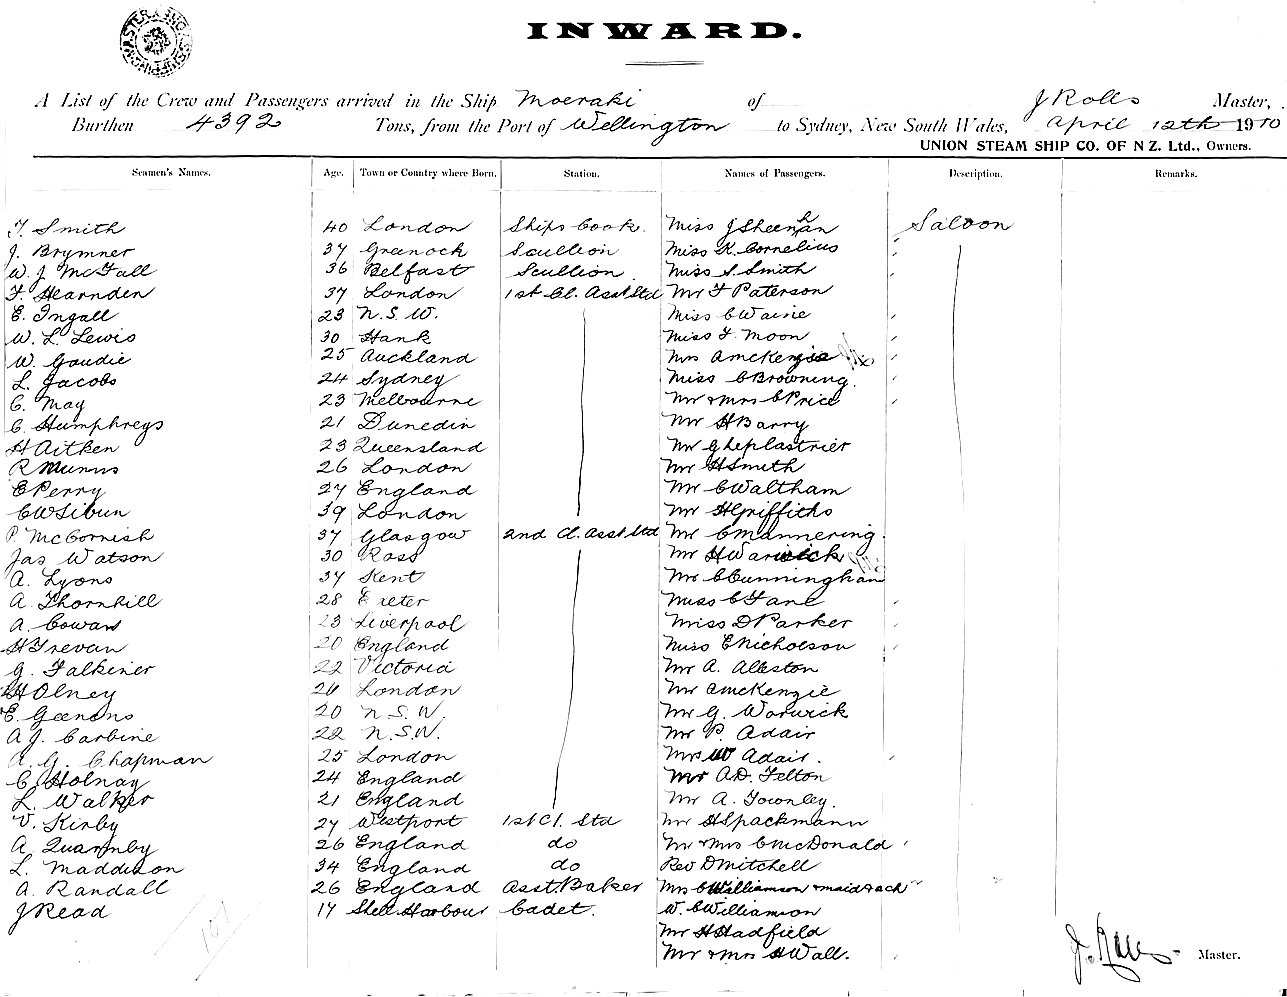 INWARD.
A List of the Crew and Passengers arrived in the Ship Moeraki of J Rolls Master,
Burthen 4392 Tons, from the Port of Wellington to Sydney, New South Wales, April 12th 1910
UNION STEAM SHIP CO. OF N Z. Ltd., Owners.
Seamen's Names. Age. Town or Country where Born. Station. Names of Passengers. Description. Remarks.
T. Smith 40 London Ships Cook. Miss J Sheenan Saloon
J. Brymner 37 Greenock Scullion Miss K. Cornelius
W. J McFall 36 Belfast Scullion Miss S. Smith
F. Hearnden 37 London 1st Cl. Asst Std Mr F Paterson
E. Ingall 23 N.S.W. Miss C Waine
W. L. Lewis 30 Hank Miss F. Moon
W. Goudie 25 Auckland Mrs A McKenzie
L. Jacobs 24 Sydney Miss C Browning.
C. May 23 Melbourne Mr & Mrs C Price
C. Humphreys 21 Dunedin Mr H Barry
H Aitken 23 Queensland Mr G Leplastrier
R Munns 26 London Mr H Smith
E Perry 27 England Mr C Waltham
C W Sibun 39 London Mr H Griffiths
P. McCornish 37 Glasgow 2nd Cl. Asst Std Mr C Mannering.
Jas Watson 30 Ross Mr H Warwick
A. Lyons 37 Kent Mr C Cunningham
A. Thornhill 28 Exeter Miss C Fane
A. Cowan 23 Liverpool Miss D Parker
H Trevan 20 England Miss E Nicholson
G. Falkiner 22 Victoria Mr A. Allston
H Olney 26 London Mr A McKenzie
E. Geenens 20 N.S.W. Mr G. Warwick
A J. Carbine 22 N.S.W. Mr P. Adair
A. G. Chapman 25 London Mrs W Adair.
C. Holnay 24 England Mr A.D. Felton
L. Walker 21 England Mr A. Townley.
V. Kirby 27 Westport 1st Cl. Std Mr H Spackmann
A. Quarmby 26 England do Mr & Mrs C McDonald
L. Maddison 34 England do Rev D Mitchell
A. Randall 26 England Asst. Baker Mrs C Williamson & maid & ach
J Read 17 Shell Harbour Cadet. W. C Williamson
Mr H Hadfield
Mr & Mrs H Wall.
J. Rolls Master.